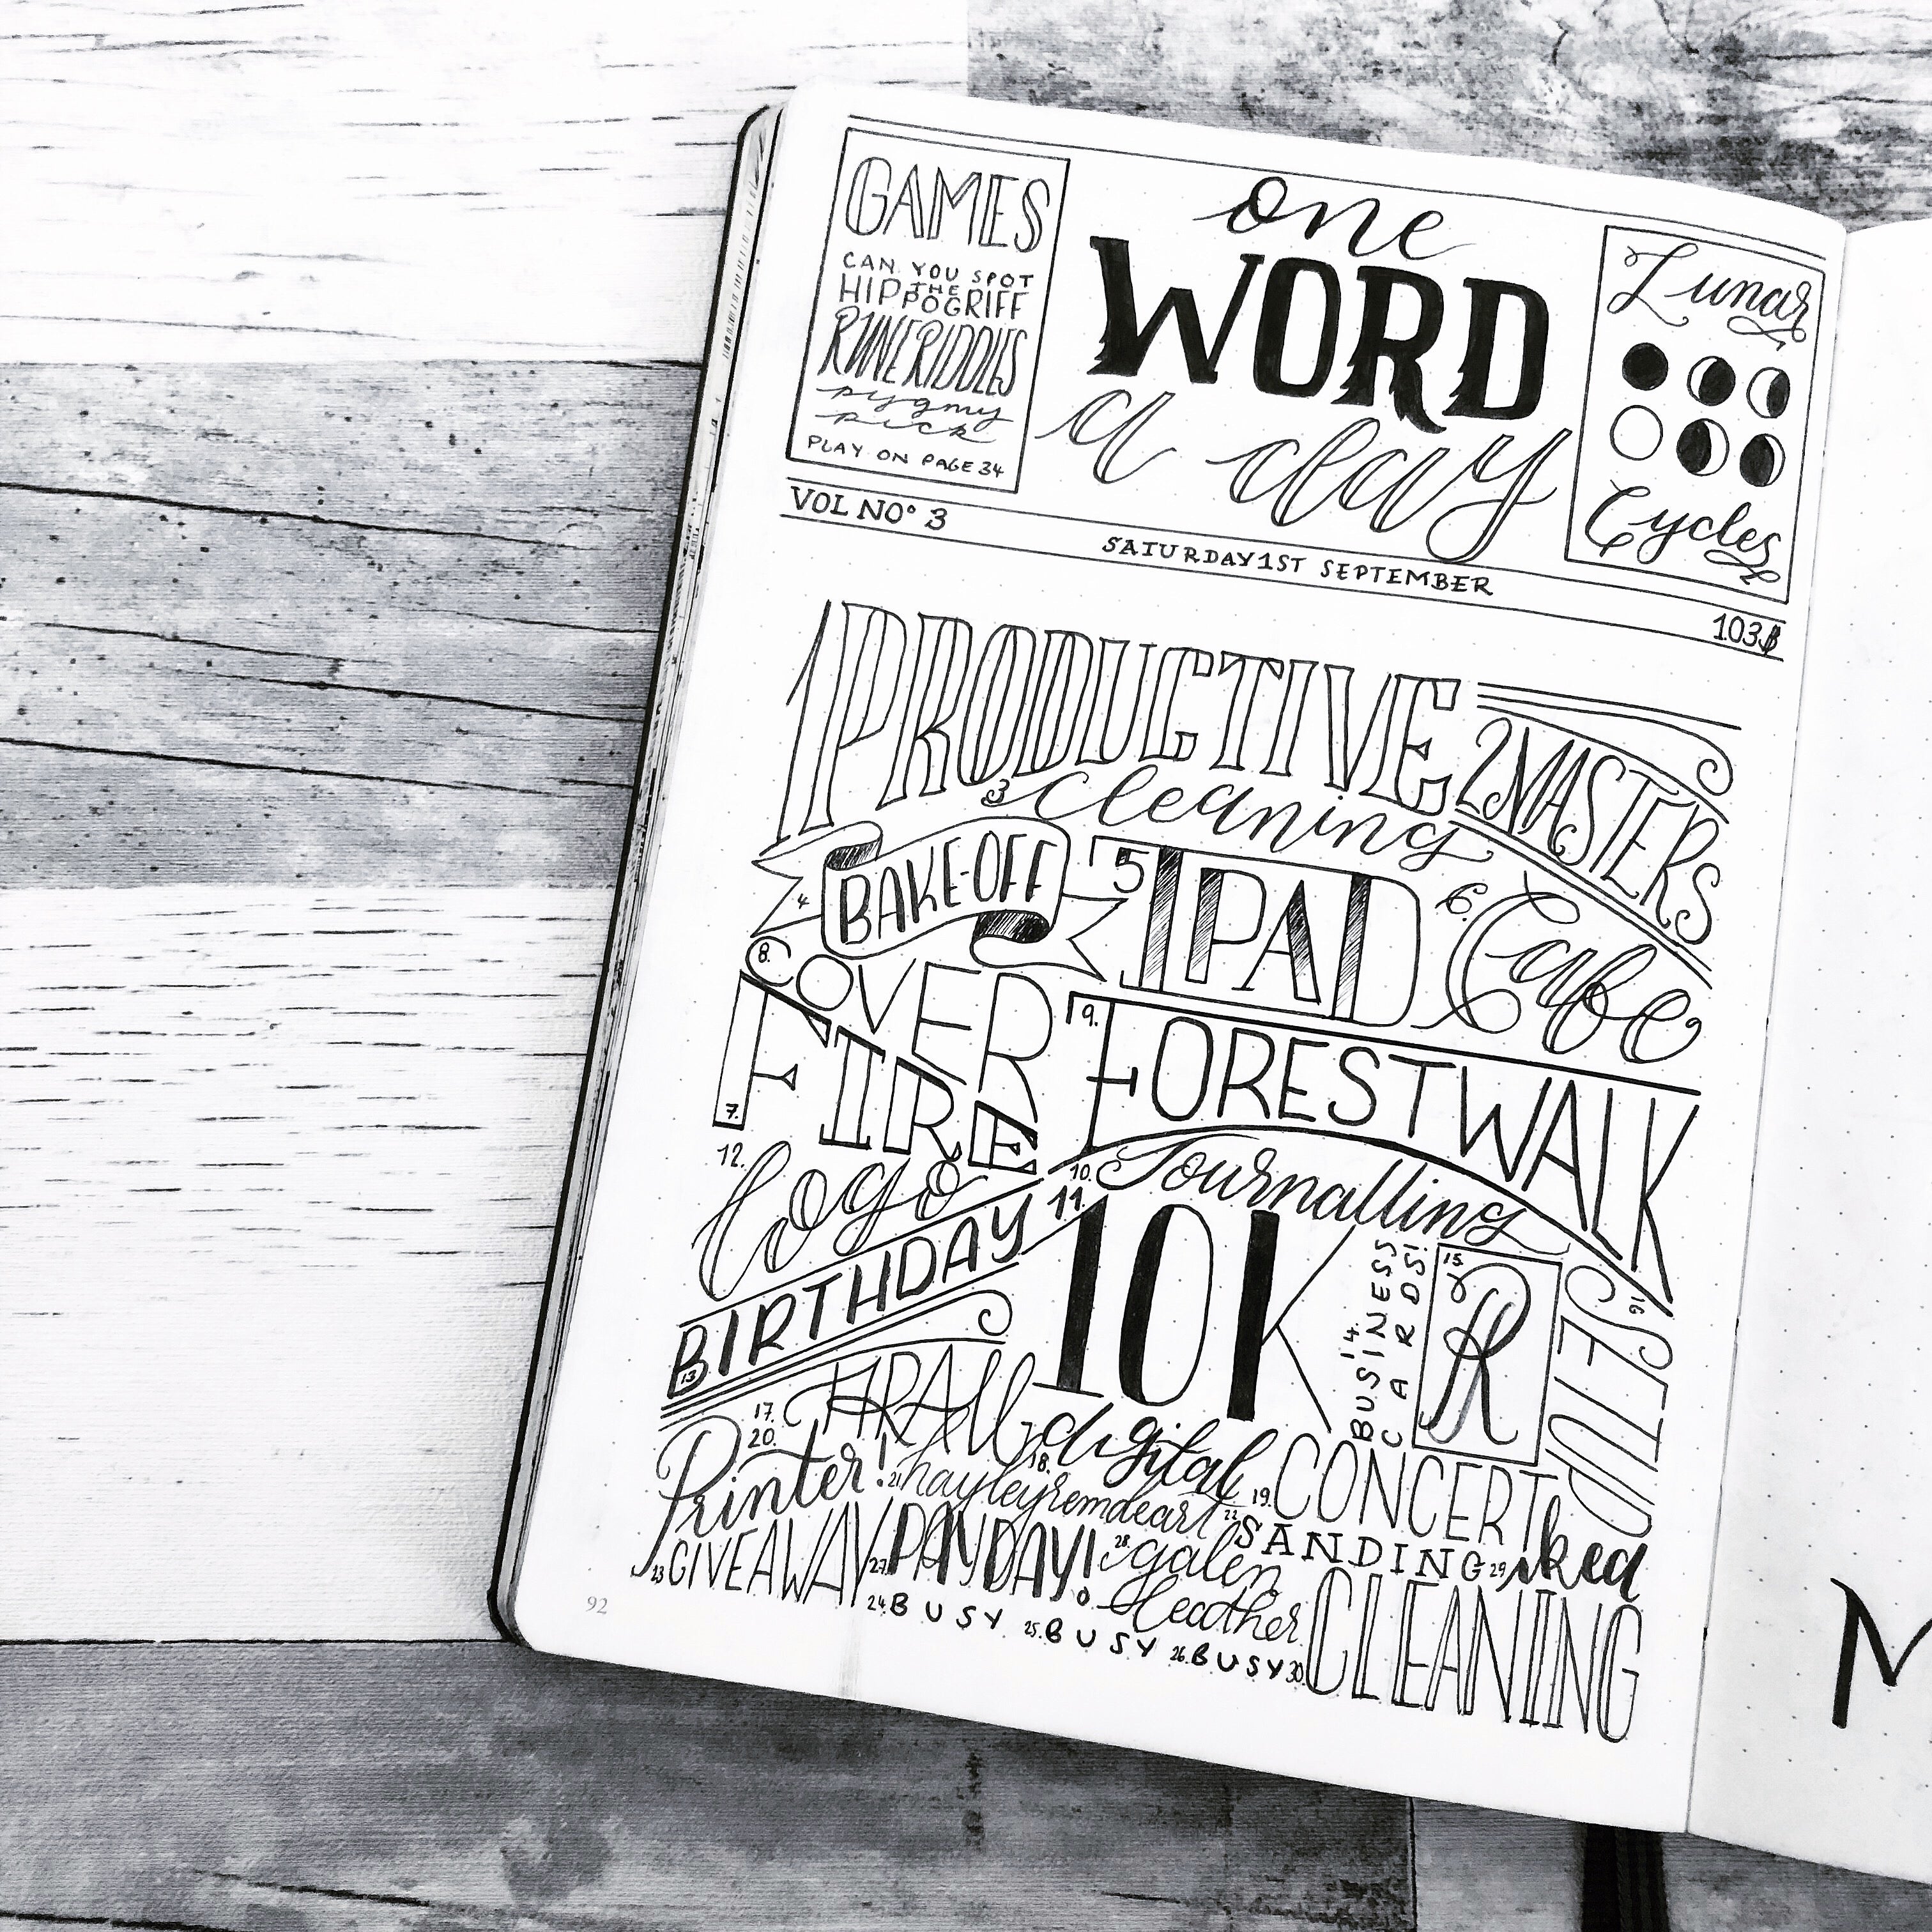 GAMES
CAN YOU SPOT
THE
HIPPOGRIFF
RUNE RIDDLES
pygmy
pick
PLAY ON PAGE 34
one
WORD
a day
Lunar
Cycles
VOL NO° 3
SATURDAY 1ST SEPTEMBER
103
1 PRODUCTIVE
2 MASTERS
3 Cleaning
4 BAKE-OFF
5 IPAD
6. Cafe
8. COVER
7. FIRE
9. FORESTWALK
10. Journalling
12. logo
11. 10K
13 BIRTHDAY
14. BUSINESS
CARDS!
15 R
16.
17.
18. digital
19. CONCERT
20. Printer!
21. hayleyremdeart
22 SANDING
23 GIVEAWAY
27. PAYDAY!
28. galen
leather
29 iked
24. BUSY
25. BUSY
26. BUSY
30. CLEANING
92
M